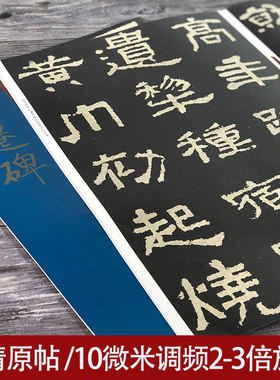 高年
遺犁種宿
黄巾初起燒
碑
清原帖 /10微米调频2-3倍